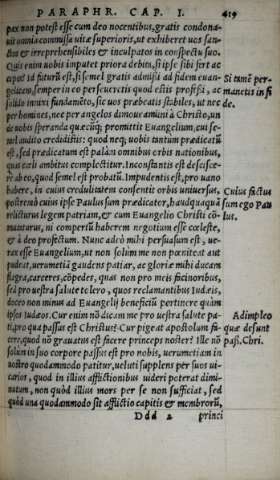 PARAPHR. CAP. I. 419
pax non potest esse cum deo nocentibus, gratis condona-
uit omnia commissa uitæ superioris, ut exhiberet uos san-
ctos & irreprehensibiles & inculpatos in conspectu suo.
Quis enim uobis imputet priora debita, si ipse sibi fert ac
ceptū id futurū est, si semel gratis admissi ad fidem euan-
gelicam, semper in eo perseueretis quod estis professi, ac
solido innixi fundamēto, sic uos præbeatis stabiles, ut nec
per homines, nec per angelos dimoueamini à Christo, un
de uobis speranda quæcūq; promittit Euangelium, cui se-
mel audito credidistis: quod neq; uobis tantum prædicatū
est, sed prædicatum est palàm omnibus orbis nationibus,
quas cæli ambitus complectitur. Inconstantis est desiscē-
re ab eo, quod semel est probatū. Impudentis est, pro uano
habere, in cuius credulitatem consentit orbis uniuersus,
postremò cuius ipse Paulus sum prædicator, haudquaquā
relicturus legem patriam, & cum Euangelio Christi cō-
mutaturus, ni compertū haberem negotium esse cœleste,
& à deo profectum. Nunc adeò mihi persuasum est, ue-
rax esse Euangelium, ut non solùm me non pœniteat aut
pudeat, uerumetiā gaudens patiar, ac gloriæ mihi ducam
flagra, carceres, cōpedes, quas non pro meis facinoribus,
sed pro uestra salute tolero, quos reclamantibus Iudæis,
doceo non minus ad Euangelij beneficiū pertinere quàm
ipsos Iudæos. Cur enim nō dicam me pro uestra salute pa-
ti, pro qua passus est Christus? Cur pigeat apostolum fa-
cere, quod nō grauatus est facere princeps noster? Ille nō
solùm in suo corpore passus est pro nobis, uerumetiam in
nostro quodammodo patitur, ueluti supplens per suos ui-
carios, quod in illius afflictionibus uideri poterat dimi-
nutum, non quòd illius mors per se non sufficiat, sed
quòd una quodammodo sit afflictio capitis & membrorū,
Ddd 2 princi
Si tamē per-
manetis in fi
de.
Cuius factus
sum ego Pau
lus.
Adimpleo
quæ desunt
paß. Chri.